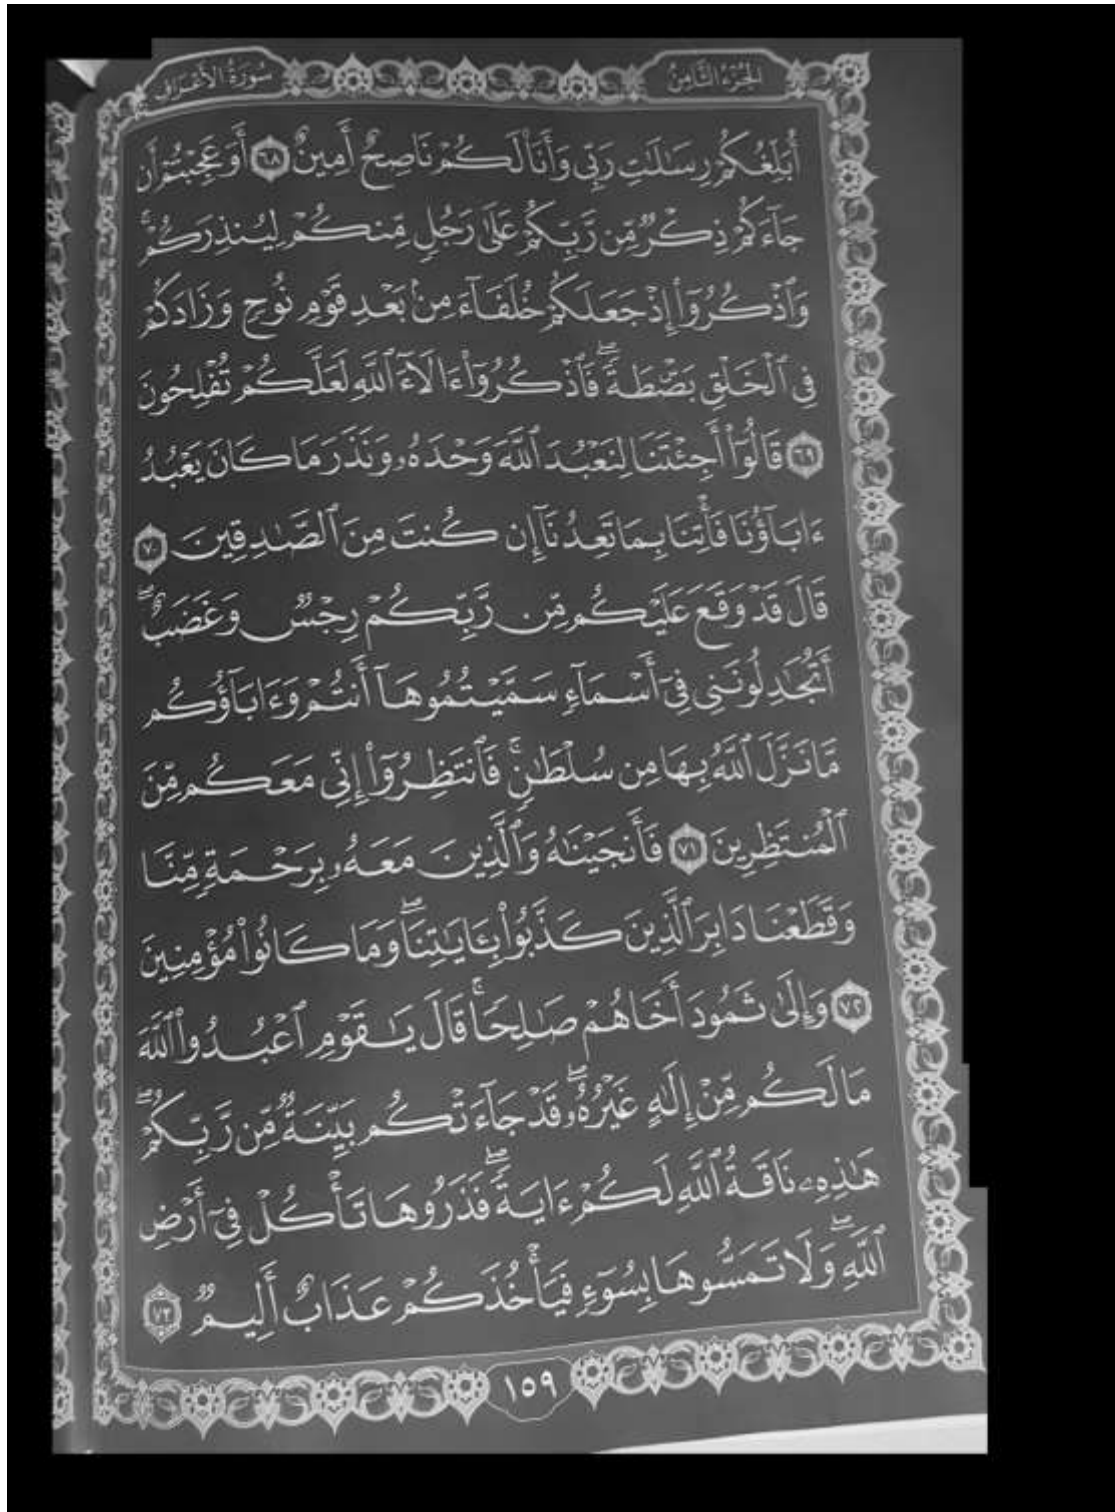 الجزء الثامن
سورة الأعراف
أُبَلِّغُكُمْ رِسَٰلَٰتِ رَبِّي وَأَنَا۠ لَكُمْ نَاصِحٌ أَمِينٌ ٦٨ أَوَعَجِبْتُمْ أَن
جَآءَكُمْ ذِكْرٌ مِّن رَّبِّكُمْ عَلَىٰ رَجُلٍ مِّنكُمْ لِيُنذِرَكُمْۚ
وَٱذْكُرُوٓا۟ إِذْ جَعَلَكُمْ خُلَفَآءَ مِنۢ بَعْدِ قَوْمِ نُوحٍ وَزَادَكُمْ
فِى ٱلْخَلْقِ بَصْۜطَةًۖ فَٱذْكُرُوٓا۟ ءَالَآءَ ٱللَّهِ لَعَلَّكُمْ تُفْلِحُونَ
٦٩ قَالُوٓا۟ أَجِئْتَنَا لِنَعْبُدَ ٱللَّهَ وَحْدَهُۥ وَنَذَرَ مَا كَانَ يَعْبُدُ
ءَابَآؤُنَا فَأْتِنَا بِمَا تَعِدُنَآ إِن كُنتَ مِنَ ٱلصَّٰدِقِينَ ٧٠
قَالَ قَدْ وَقَعَ عَلَيْكُم مِّن رَّبِّكُمْ رِجْسٌ وَغَضَبٌۖ
أَتُجَٰدِلُونَنِى فِىٓ أَسْمَآءٍ سَمَّيْتُمُوهَآ أَنتُمْ وَءَابَآؤُكُم
مَّا نَزَّلَ ٱللَّهُ بِهَا مِن سُلْطَٰنٍۚ فَٱنتَظِرُوٓا۟ إِنِّى مَعَكُم مِّنَ
ٱلْمُنتَظِرِينَ ٧١ فَأَنجَيْنَٰهُ وَٱلَّذِينَ مَعَهُۥ بِرَحْمَةٍ مِّنَّا
وَقَطَعْنَا دَابِرَ ٱلَّذِينَ كَذَّبُوا۟ بِـَٔايَٰتِنَاۖ وَمَا كَانُوا۟ مُؤْمِنِينَ
٧٢ وَإِلَىٰ ثَمُودَ أَخَاهُمْ صَٰلِحًاۚ قَالَ يَٰقَوْمِ ٱعْبُدُوا۟ ٱللَّهَ
مَا لَكُم مِّنْ إِلَٰهٍ غَيْرُهُۥۖ قَدْ جَآءَتْكُم بَيِّنَةٌ مِّن رَّبِّكُمْۖ
هَٰذِهِۦ نَاقَةُ ٱللَّهِ لَكُمْ ءَايَةًۖ فَذَرُوهَا تَأْكُلْ فِىٓ أَرْضِ
ٱللَّهِۖ وَلَا تَمَسُّوهَا بِسُوٓءٍ فَيَأْخُذَكُمْ عَذَابٌ أَلِيمٌ ٧٣
١٥٩